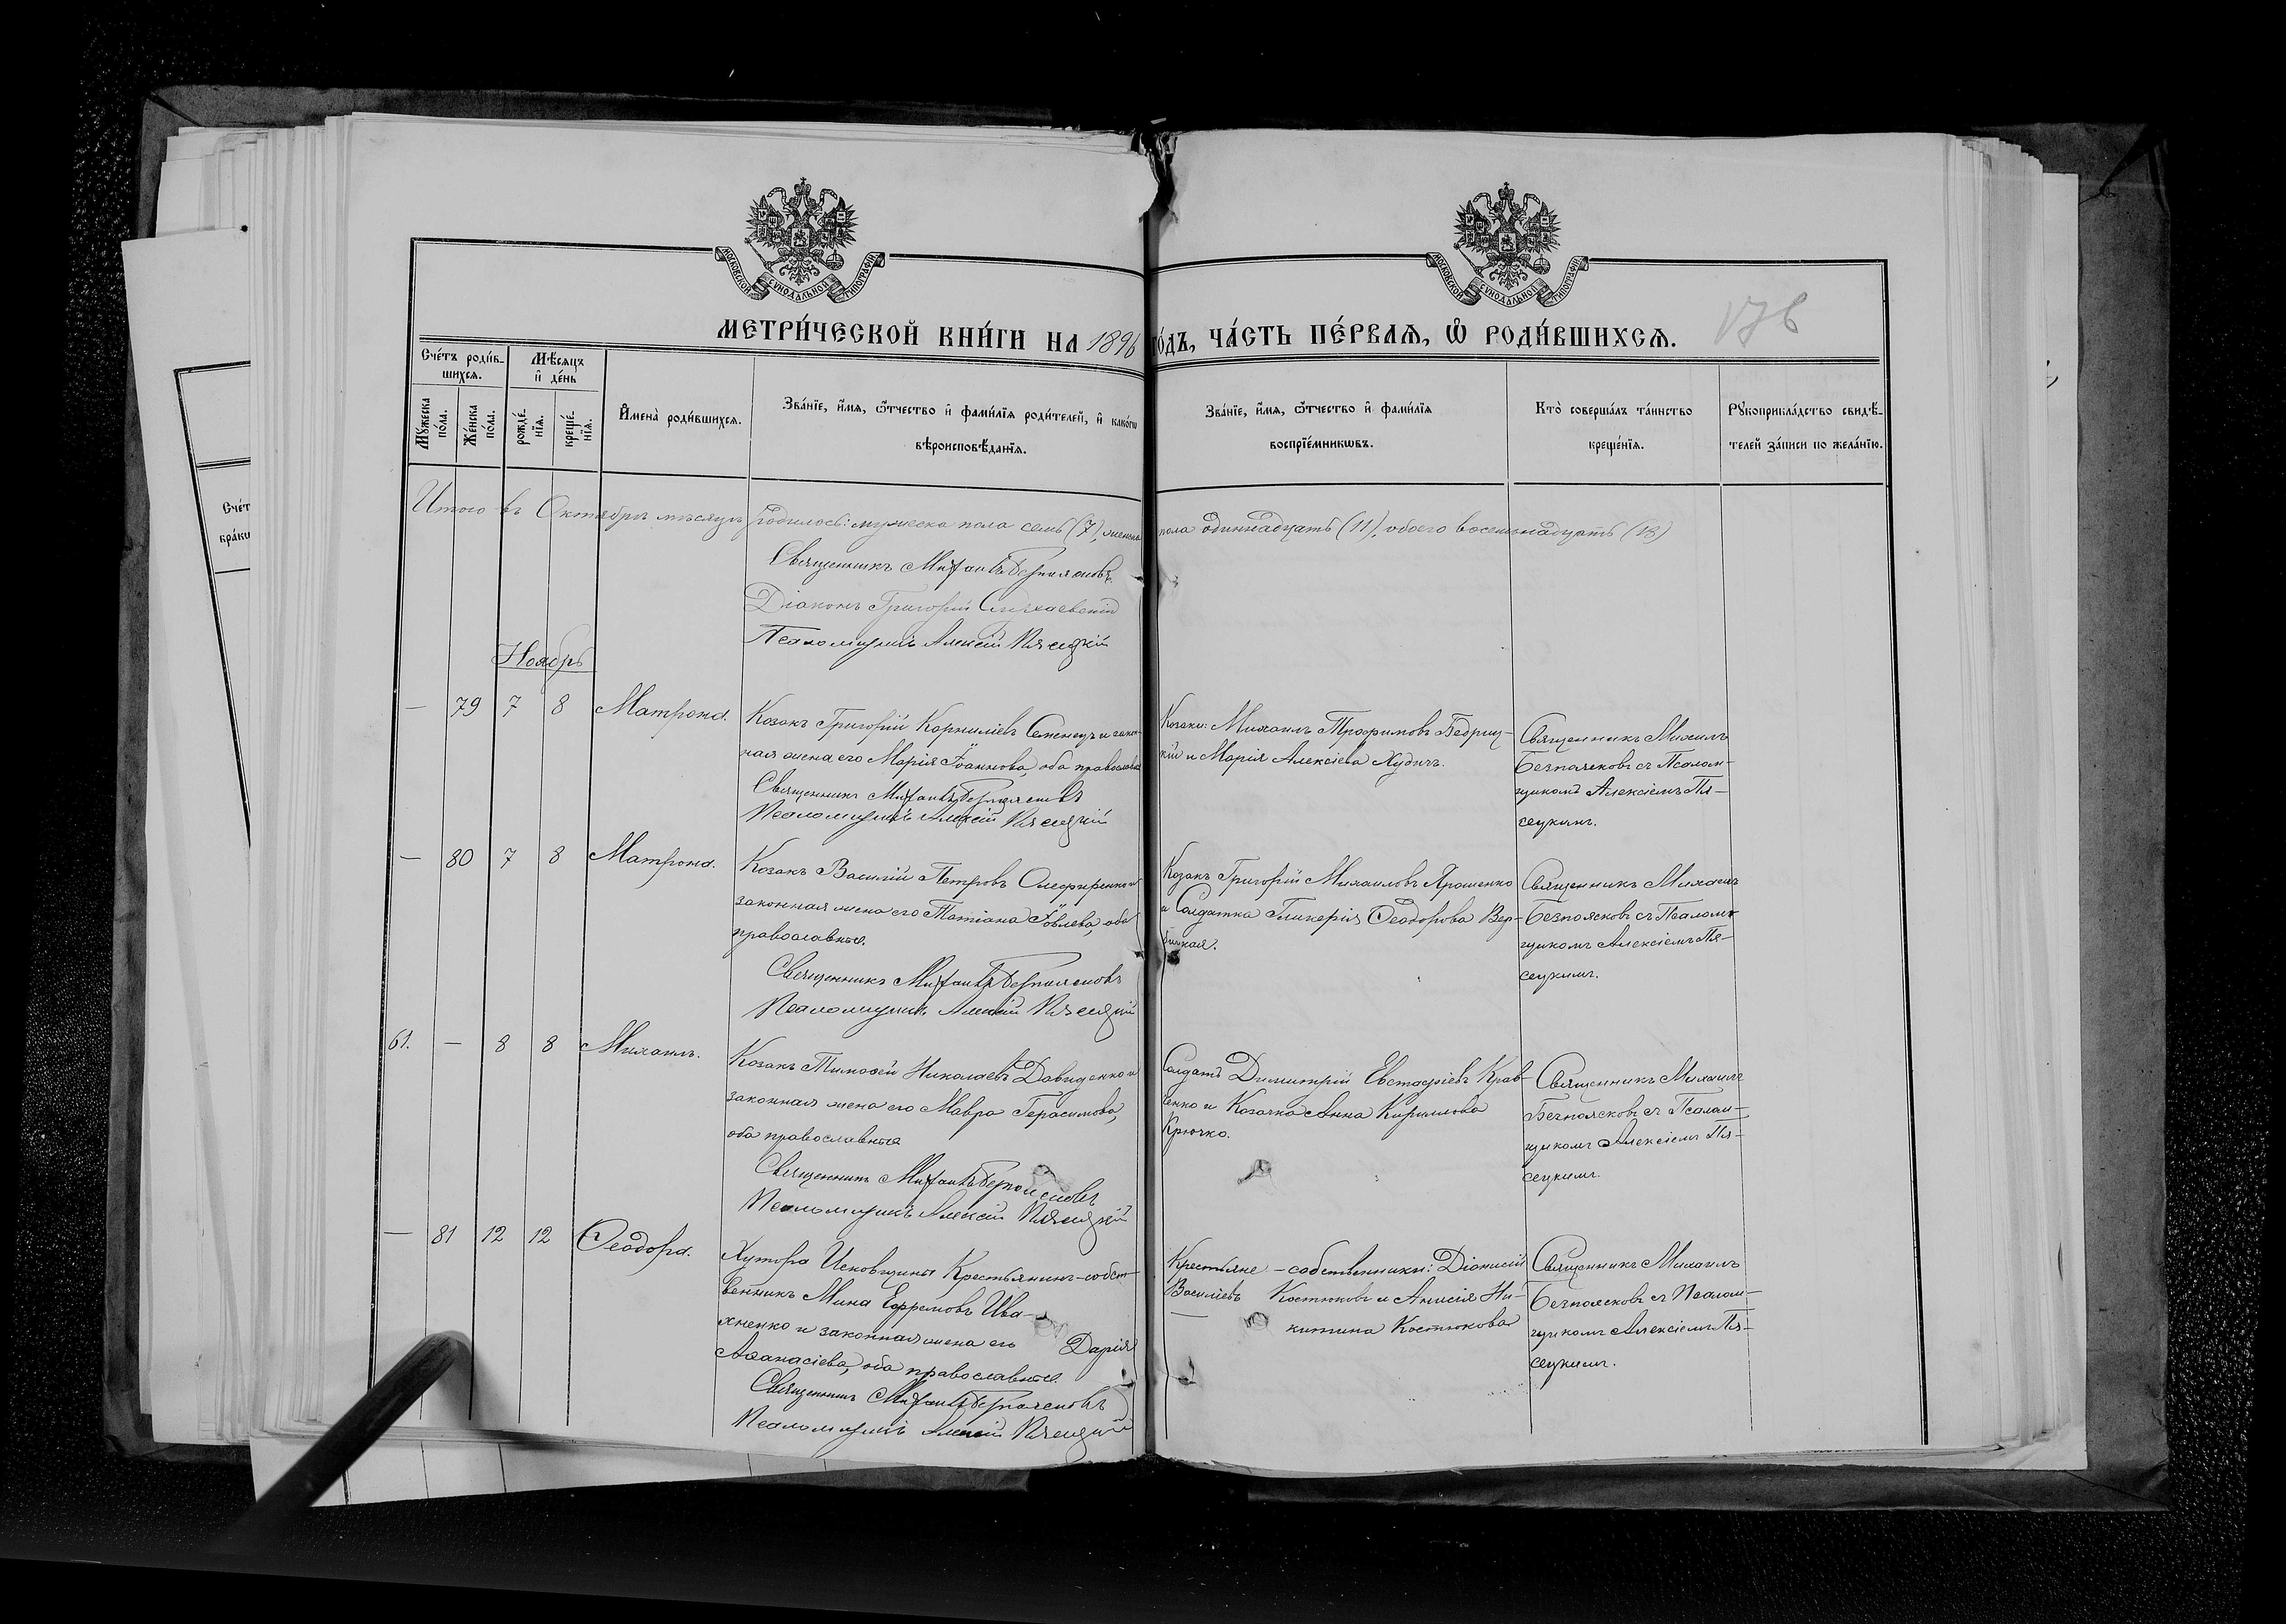 МОСКОВСКОЙ СѴНОДАЛЬНОЙ ТИПОГРАФІИ
МОСКОВСКОЙ СѴНОДАЛЬНОЙ ТИПОГРАФІИ
МЕТРИ́ЧЕСКОЙ КНИ́ГИ НА 1896 ГО́ДЪ, ЧА́СТЬ ПЕ́РВАЯ, Ѡ РОДИ́ВШИХСЯ.
176
Сче́тъ роди́в-
шихся.
Мѣ́сяцъ
и де́нь
Мꙋ́жеска
по́ла.
Же́нска
по́ла.
рожде́-
нїя.
креще́-
нїя.
Имена̀ роди́вшихся.
Зва́нїе, и́мя, ѻ́тчество и фами́лїя роди́телей, и како́гѡ
вѣроисповѣ́данїя.
Зва́нїе, и́мя, ѻ́тчество и фами́лїя
воспрїе́мникѡвъ.
Кто̀ соверша́лъ та́инство
креще́нїя.
Рꙋкоприкла́дство свидѣ́-
телей за́писи по жела́нїю.
Счет
браки
Итого въ Октябрѣ мѣсяцѣ родилось: мужеска пола семь (7), женска пола одиннадцать (11), обоего восемнадцать (18)
Священникъ Михаилъ Безпоясковъ
Діаконъ Григорій
Псаломщикъ Алексій Пясецкій
Ноябрь
— 79 7 8 Матрона.
Козакъ Григорій Корниліевъ Семенецъ и закон-
ная жена его Марія Іоаннова, оба православные
Священникъ Михаилъ Безпоясковъ
Псаломщикъ Алексій Пясецкій
Козаки: Михаилъ Трофимовъ Бедриц-
кій и Марія Алексіева Худичъ.
Священникъ Михаилъ
Безпоясковъ съ Псалом-
щикомъ Алексіемъ Пя-
сецкимъ.
— 80 7 8 Матрона.
Козакъ Василій Петровъ Олефиренко и
законная жена его Татіана Іовлева, оба
православные.
Священникъ Михаилъ Безпоясковъ
Псаломщикъ Алексій Пясецкій
Козакъ Григорій Михаиловъ Ярошенко
и Солдатка Гликерія Ѳеодорова Вер-
бицкая.
Священникъ Михаилъ
Безпоясковъ съ Псалом-
щикомъ Алексіемъ Пя-
сецкимъ.
61. — 8 8 Михаилъ.
Козакъ Тимоѳей Николаевъ Давиденко и
законная жена его Мавра Герасимова,
оба православные
Священникъ Михаилъ Безпоясковъ
Псаломщикъ Алексій Пясецкій
Солдатъ Димитрій Евстафіевъ Крав-
ченко и Козачка Анна Кириллова
Крючко.
Священникъ Михаилъ
Безпоясковъ съ Псалом-
щикомъ Алексіемъ Пя-
сецкимъ.
— 81 12 12 Ѳеодора.
Хутора Исковщины Крестьянинъ-собст-
венникъ Мина Ефремовъ Ива-
хненко и законная жена его Дарія
Аѳанасіева, оба православные.
Священникъ Михаилъ Безпоясковъ
Псаломщикъ Алексій Пясецкій
Крестьяне-собственники: Діонисій
Василіевъ Костюковъ и Анисія Ни-
китина Костюкова
Священникъ Михаилъ
Безпоясковъ съ Псалом-
щикомъ Алексіемъ Пя-
сецкимъ.